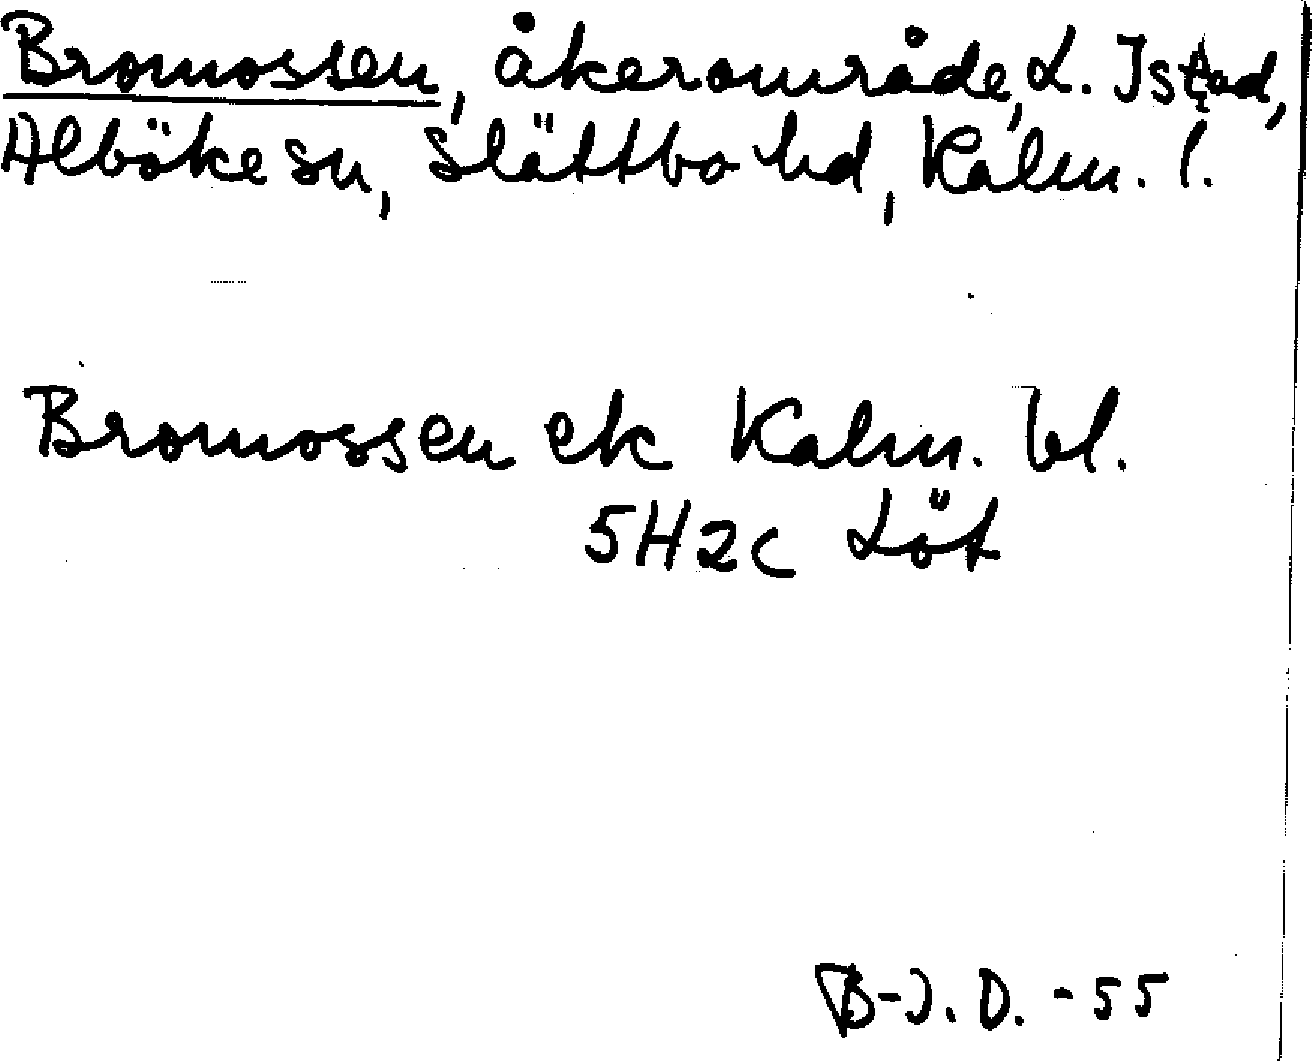 Bromossen, åkerområde, L. Istad,
Alböke sn, Slättbo hd, Kalm. l.
Bromossen ek Kalm. bl.
5H2c Löt
B-J. D. -55